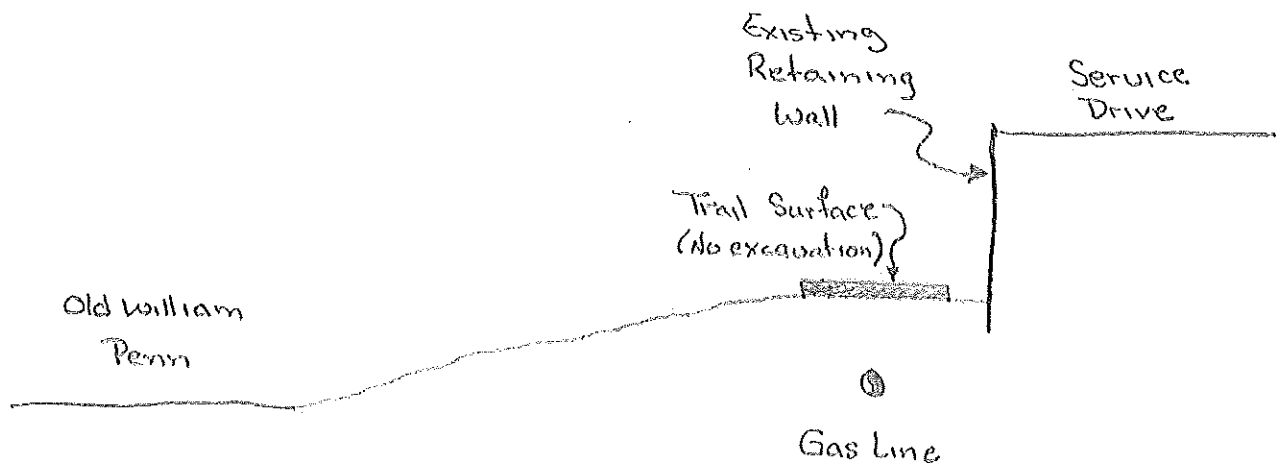 Existing
Retaining
Wall
Service
Drive
Trail Surface
(No excavation)
Old William
Penn
Gas Line